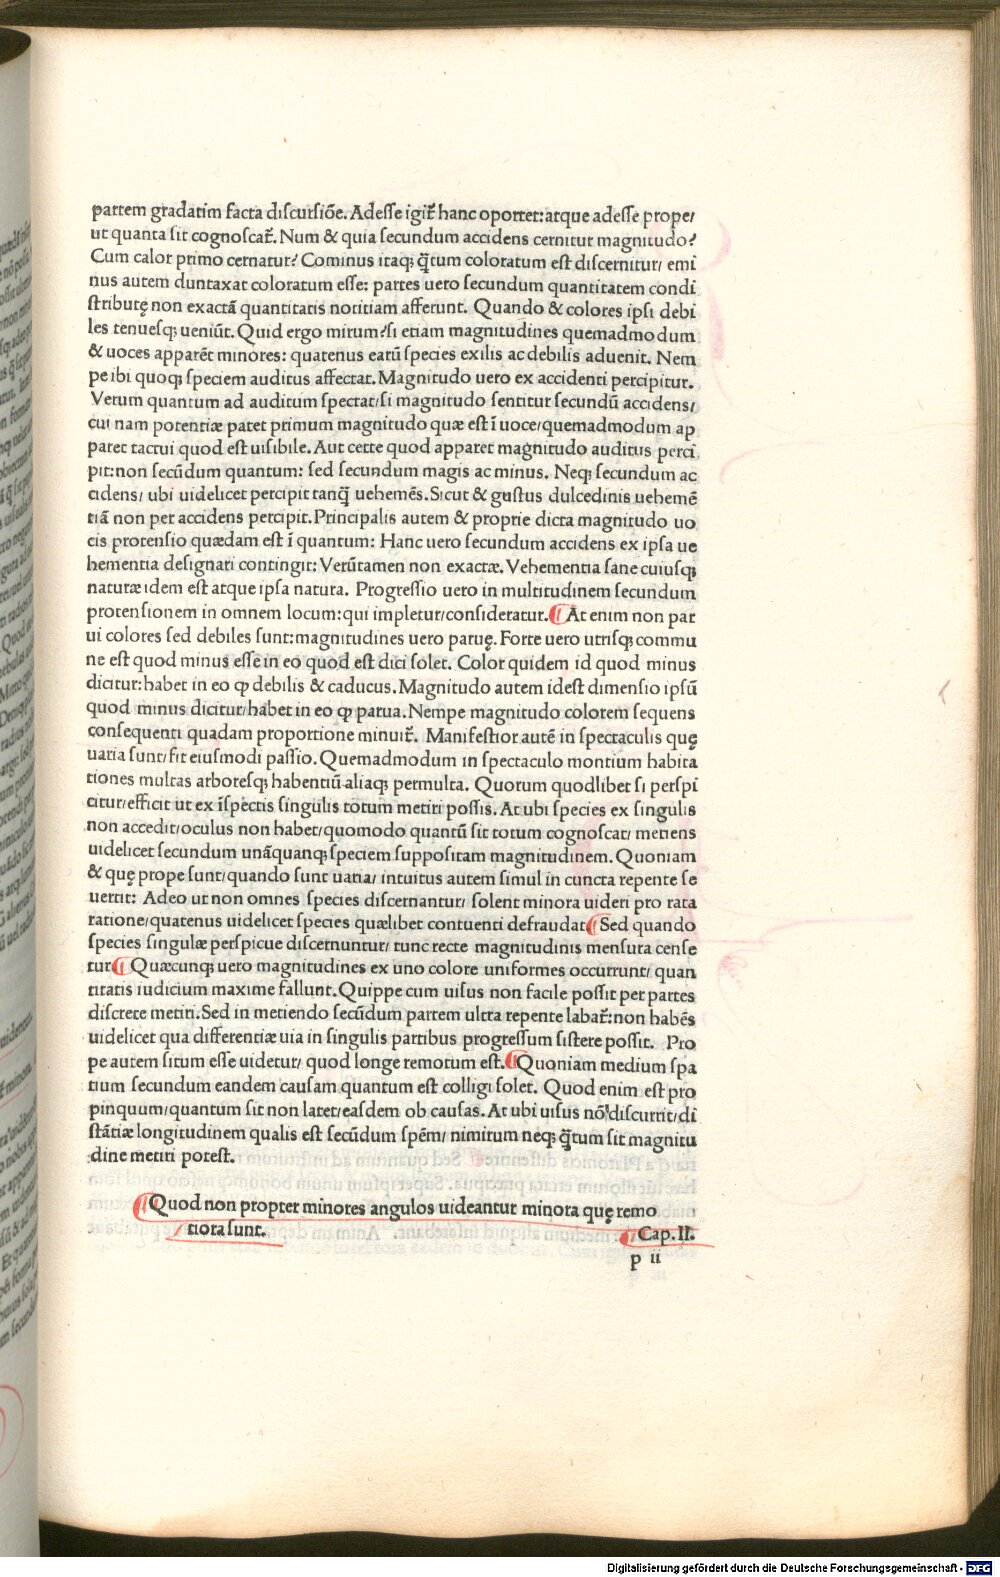 partem gradatim facta discursiõe. Adesse igit̃ hanc oportet: atque adesse prope/
ut quanta sit cognoscat̃. Num & quia secundum accidens cernitur magnitudo?
Cum calor primo cernatur? Cominus itaq; q̃tum coloratum est discernitur/ emi
nus autem duntaxat coloratum esse: partes uero secundum quantitatem condi
stributę non exactã quantitatis notitiam afferunt. Quando & colores ipsi debi
les tenuesq; ueniũt. Quid ergo mirum/si etiam magnitudines quemadmodum
& uoces apparẽt minores: quatenus earũ species exilis ac debilis aduenit. Nem
pe ibi quoq; speciem auditus affectat. Magnitudo uero ex accidenti percipitur.
Verum quantum ad auditum spectat/si magnitudo sentitur secundũ accidens/
cui nam potentiæ patet primum magnitudo quæ est ĩ uoce/quemadmodum ap
paret tactui quod est uisibile. Aut certe quod apparet magnitudo auditus perci
pit: non secũdum quantum: sed secundum magis ac minus. Neq; secundum ac
cidens/ ubi uidelicet percipit tanq̃ uehemẽs. Sicut & gustus dulcedinis uehemẽ
tiã non per accidens percipit. Principalis autem & proprie dicta magnitudo uo
cis protensio quædam est ĩ quantum: Hanc uero secundum accidens ex ipsa ue
hementia designari contingit: Verũtamen non exactæ. Vehementia sane cuiusq;
naturæ idem est atque ipsa natura. Progressio uero in multitudinem secundum
protensionem in omnem locum: qui impletur/consideratur. ¶ At enim non par
ui colores sed debiles sunt: magnitudines uero paruę. Forte uero utrisq; commu
ne est quod minus esse in eo quod est dici solet. Color quidem id quod minus
dicitur: habet in eo ꝙ debilis & caducus. Magnitudo autem idest dimensio ipsũ
quod minus dicitur/habet in eo ꝙ parua. Nempe magnitudo colorem sequens
consequenti quadam proportione minuit̃. Manifestior autẽ in spectaculis quę
uaria sunt/fit eiusmodi passio. Quemadmodum in spectaculo montium habita
tiones multas arboresq; habentiũ aliaq; permulta. Quorum quodlibet si perspi
citur/efficit ut ex ĩspectis singulis totum metiri possis. At ubi species ex singulis
non accedit/oculus non habet/quomodo quantũ sit totum cognoscat/ metiens
uidelicet secundum unãquanq; speciem suppositam magnitudinem. Quoniam
& quę prope sunt/quando sunt uaria/ intuitus autem simul in cuncta repente se
uertit: Adeo ut non omnes species discernantur/ solent minora uideri pro rata
ratione/quatenus uidelicet species quælibet contuenti defraudat ¶ Sed quando
species singulæ perspicue discernuntur/ tunc recte magnitudinis mensura cense
tur ¶ Quæcunq; uero magnitudines ex uno colore uniformes occurrunt/ quan
titatis iudicium maxime fallunt. Quippe cum uisus non facile possit per partes
discrete metiri. Sed in metiendo secũdum partem ultra repente labat̃: non habẽs
uidelicet qua differentiæ uia in singulis partibus progressum sistere possit. Pro
pe autem situm esse uidetur/ quod longe remotum est. ¶ Quoniam medium spa
tium secundum eandem causam quantum est colligi solet. Quod enim est pro
pinquum/quantum sit non latet/easdem ob causas. At ubi uisus nõ discurrit/di
stãtiæ longitudinem qualis est secũdum spẽm/ nimirum neq; q̃tum sit magnitu
dine metiri potest.
¶ Quod non propter minores angulos uideantur minora quę remo
tiora sunt.
¶ Cap. II.
p ii
Digitalisierung gefördert durch die Deutsche Forschungsgemeinschaft - DFG